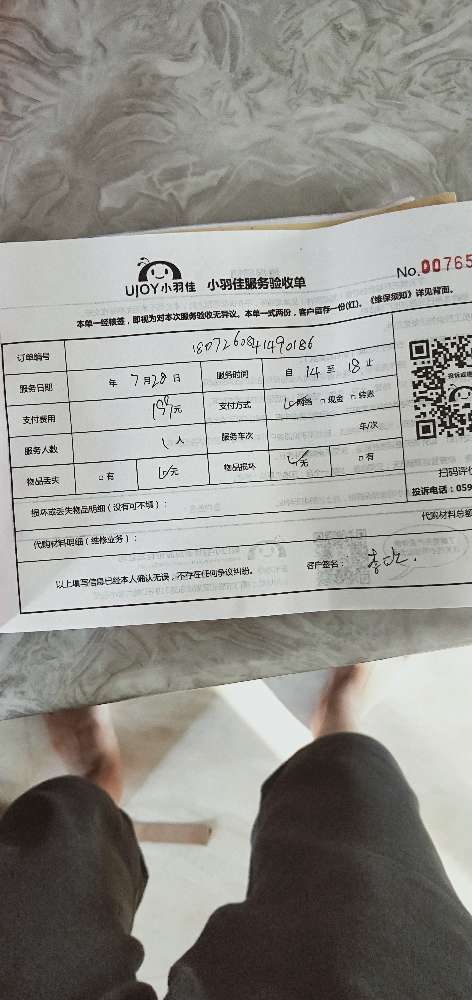 UJOY小羽佳 小羽佳服务验收单
No.00765
本单一经核签，即视为对本次服务验收无异议。本单一式两份，客户留存一份(红)。《维保须知》详见背面。
订单编号 1807260841490186
服务日期 年 7月28日 服务时间 自 14 至 18 止
支付费用 元 支付方式 网络 □现金 □转账
服务人数 人 服务车次 年/次
物品丢失 □有 无 物品损坏 无 □有
损坏或丢失物品明细（没有可不填）：
代购材料明细（维修业务）：
代购材料总额
以上填写信息已经本人确认无误，不存在任何争议纠纷。 客户签名：
扫码评价
投诉电话：059